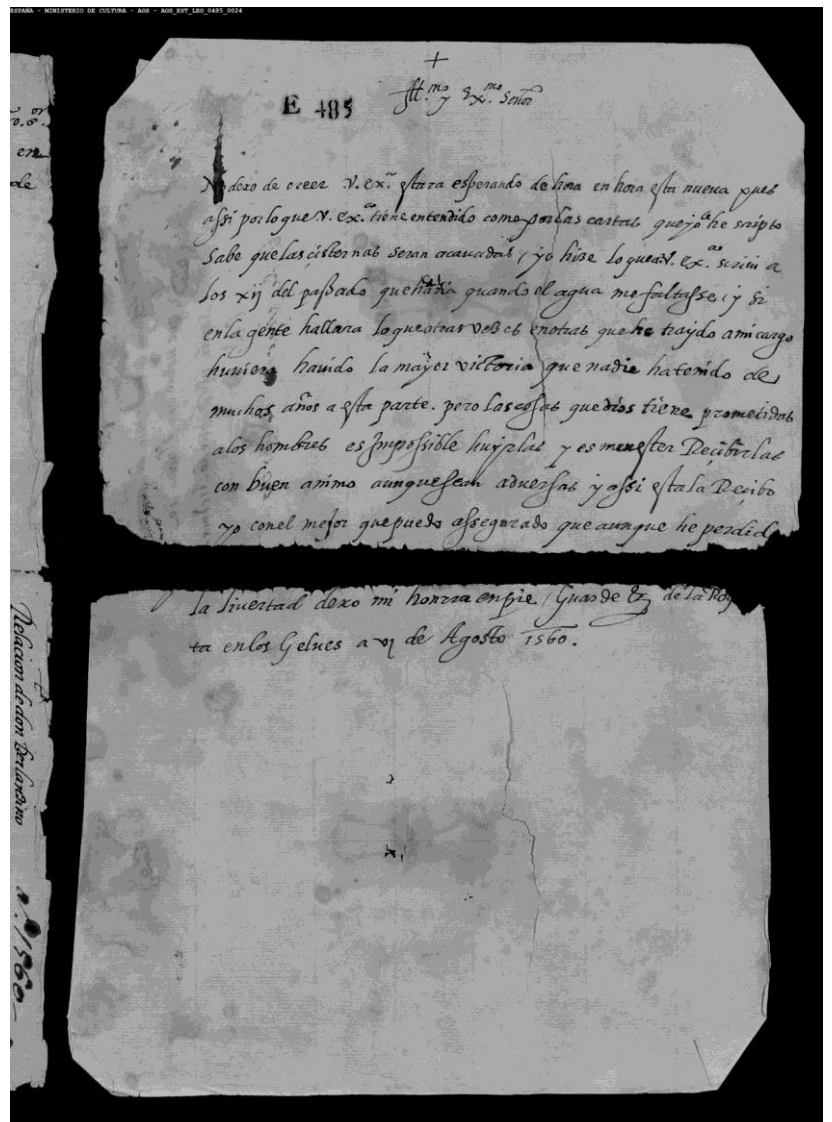 ESPAÑA - MINISTERIO DE CULTURA - AGS - AGS_EST_LEG_0485_0024
+
Ill.mo y Ex.mo Señor
E 485
No dexo de creer V. ex.a estara esperando de hora en hora esta nueva pues
assi por lo que V. ex.a tiene entendido como por las cartas que yo he scripto
sabe que las cisternas seran acavadas, yo hize lo que a V. ex.a screvi a
los xij del passado que haria quando el agua me faltasse, y si
en la gente hallara lo que otras vezes en otras que he traydo a mi cargo
huviera havido la mayor victoria que nadie ha tenido de
muchos años a esta parte. pero las cosas que dios tiene prometidas
a los hombres es Impossible huyrlas y es menester Recibirlas
con buen animo aunque sean adversas y assi esta la Recibo
yo con el mejor que puedo assegurado que aunque he perdid
la livertad dexo mi honrra en pie, Guarde &
ta en los Gelves a vj de Agosto 1560.
en
de
Relacion de don
a.º 1560